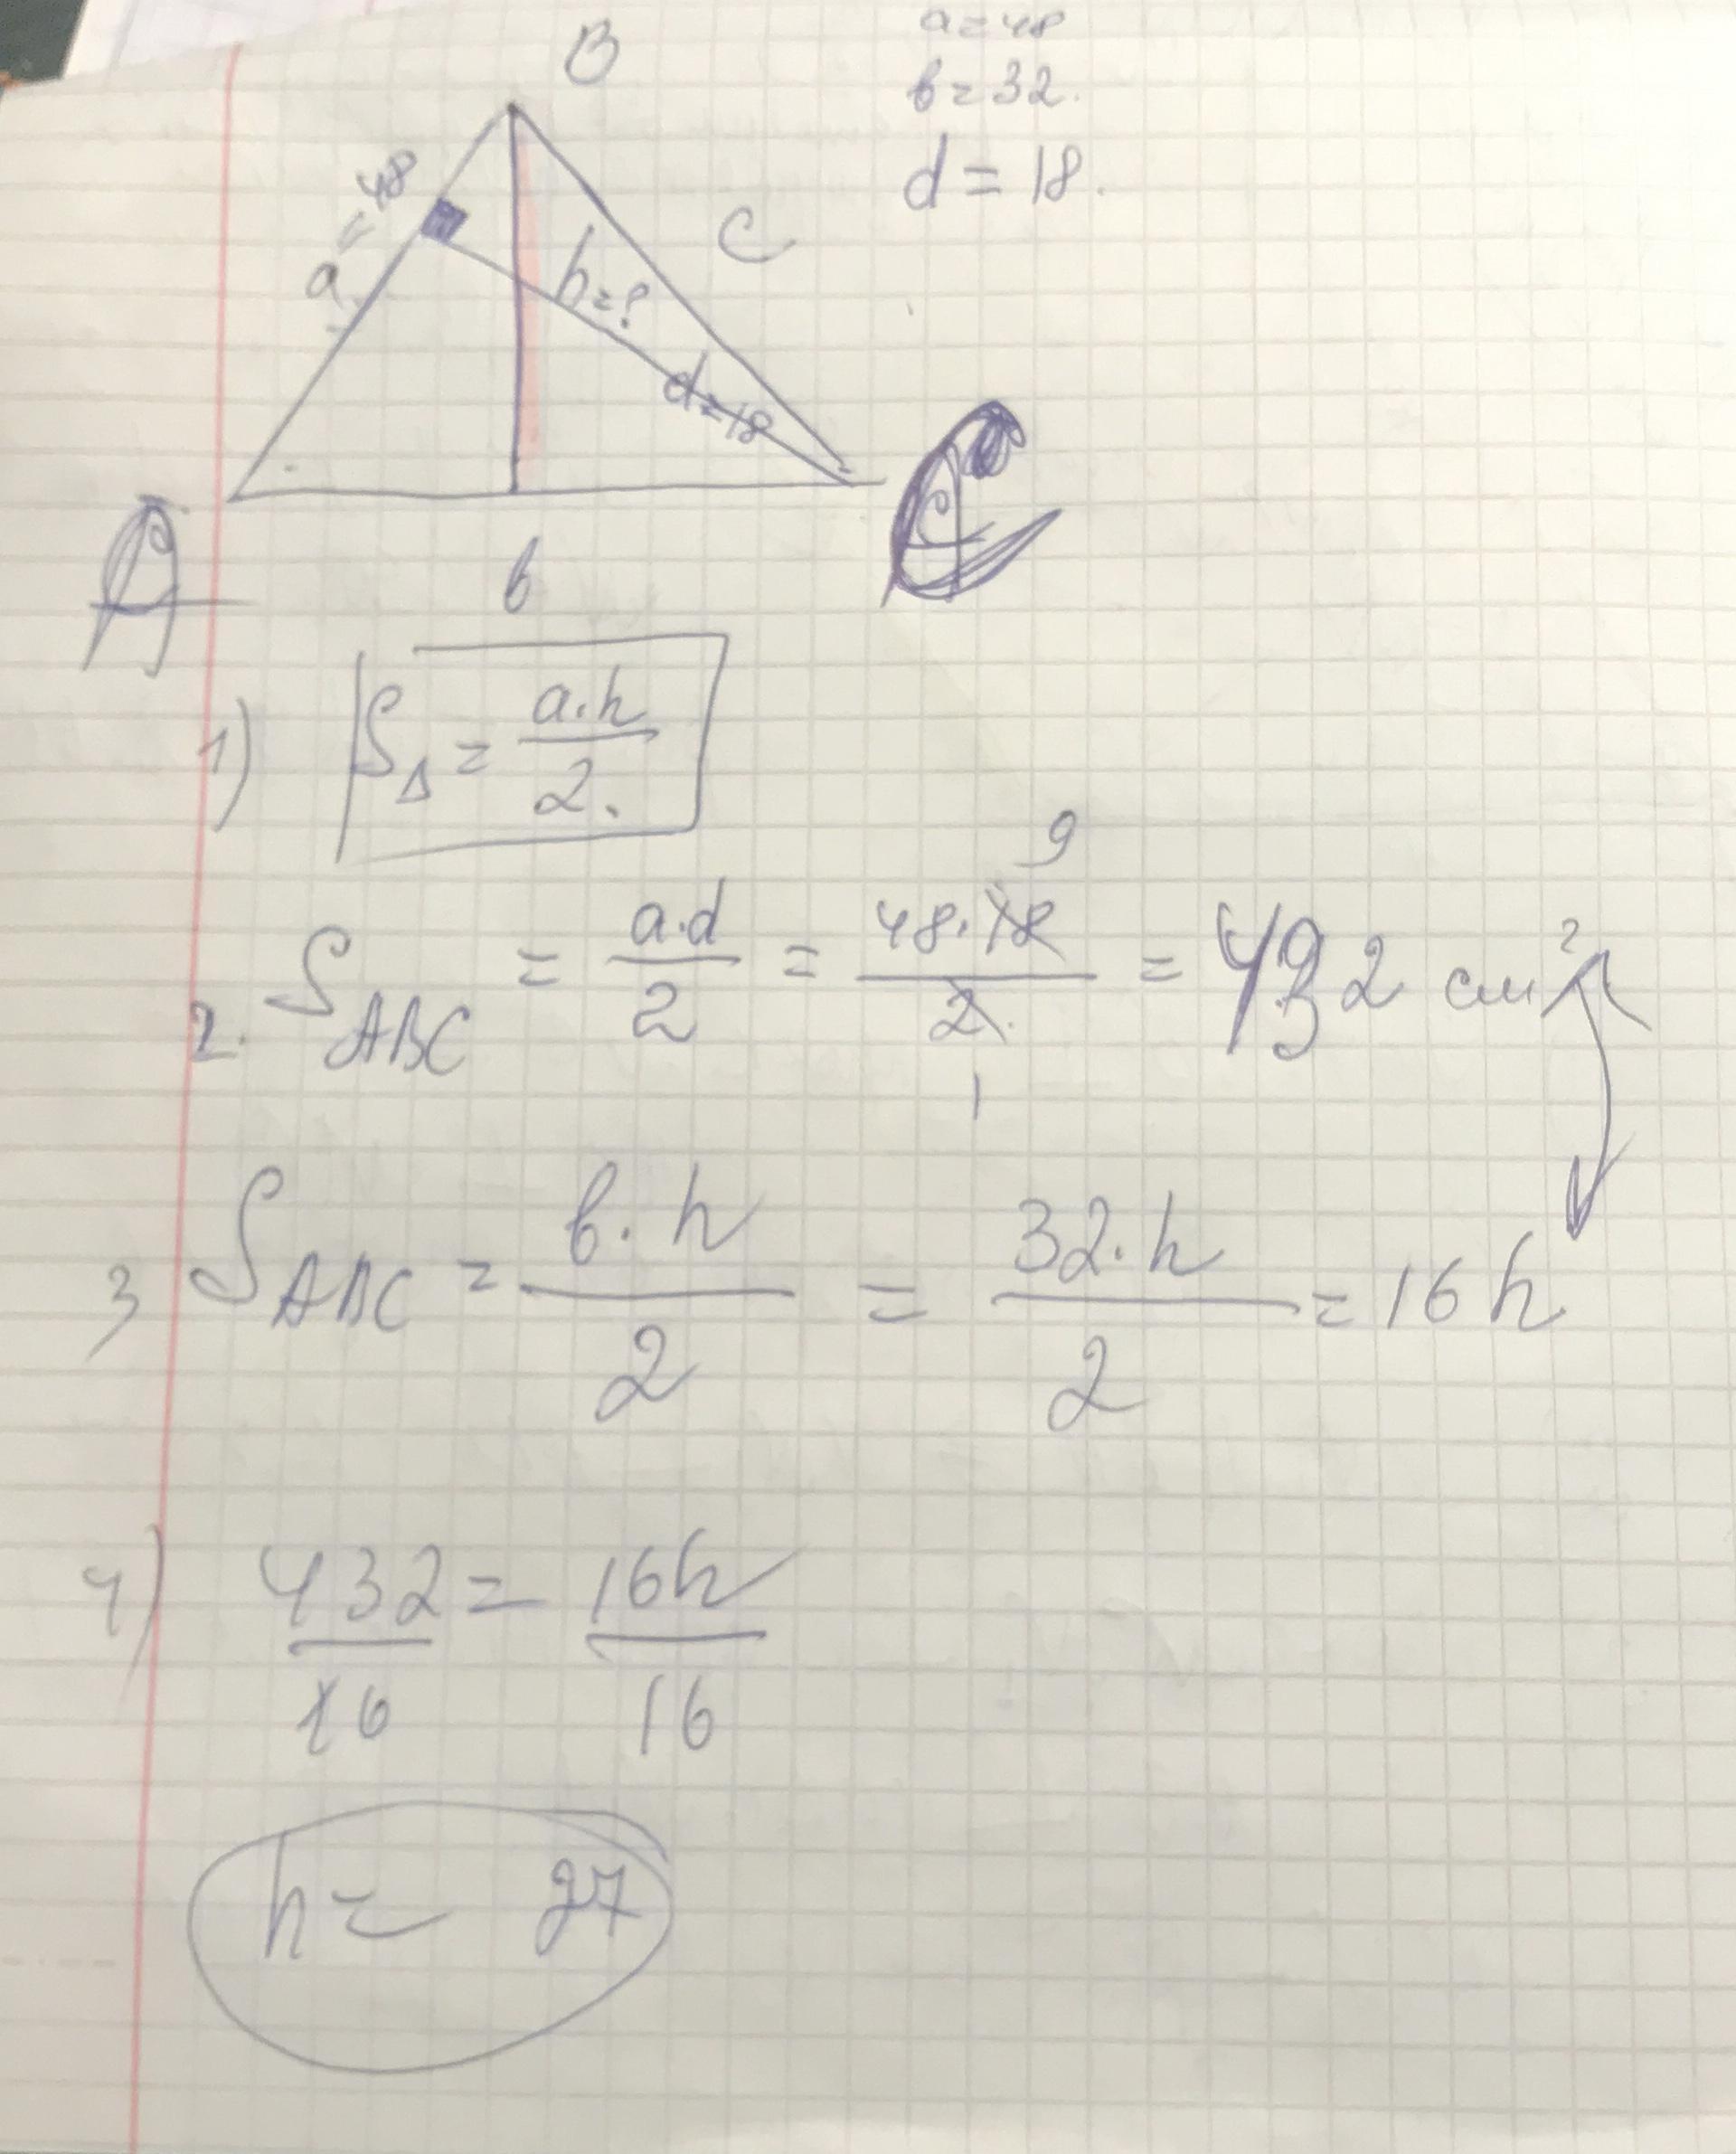 a = 48
в = 32.
d = 18.
B
a = 48
C
h = ?
d = 18
A
C
в
1) S△ = a·h / 2.
2. S ABC = a·d / 2 = 48·18 / 2. = 432 см²
9
1
3 S ABC = в·h / 2 = 32·h / 2 = 16h
4) 432 / 16 = 16h / 16
h = 27